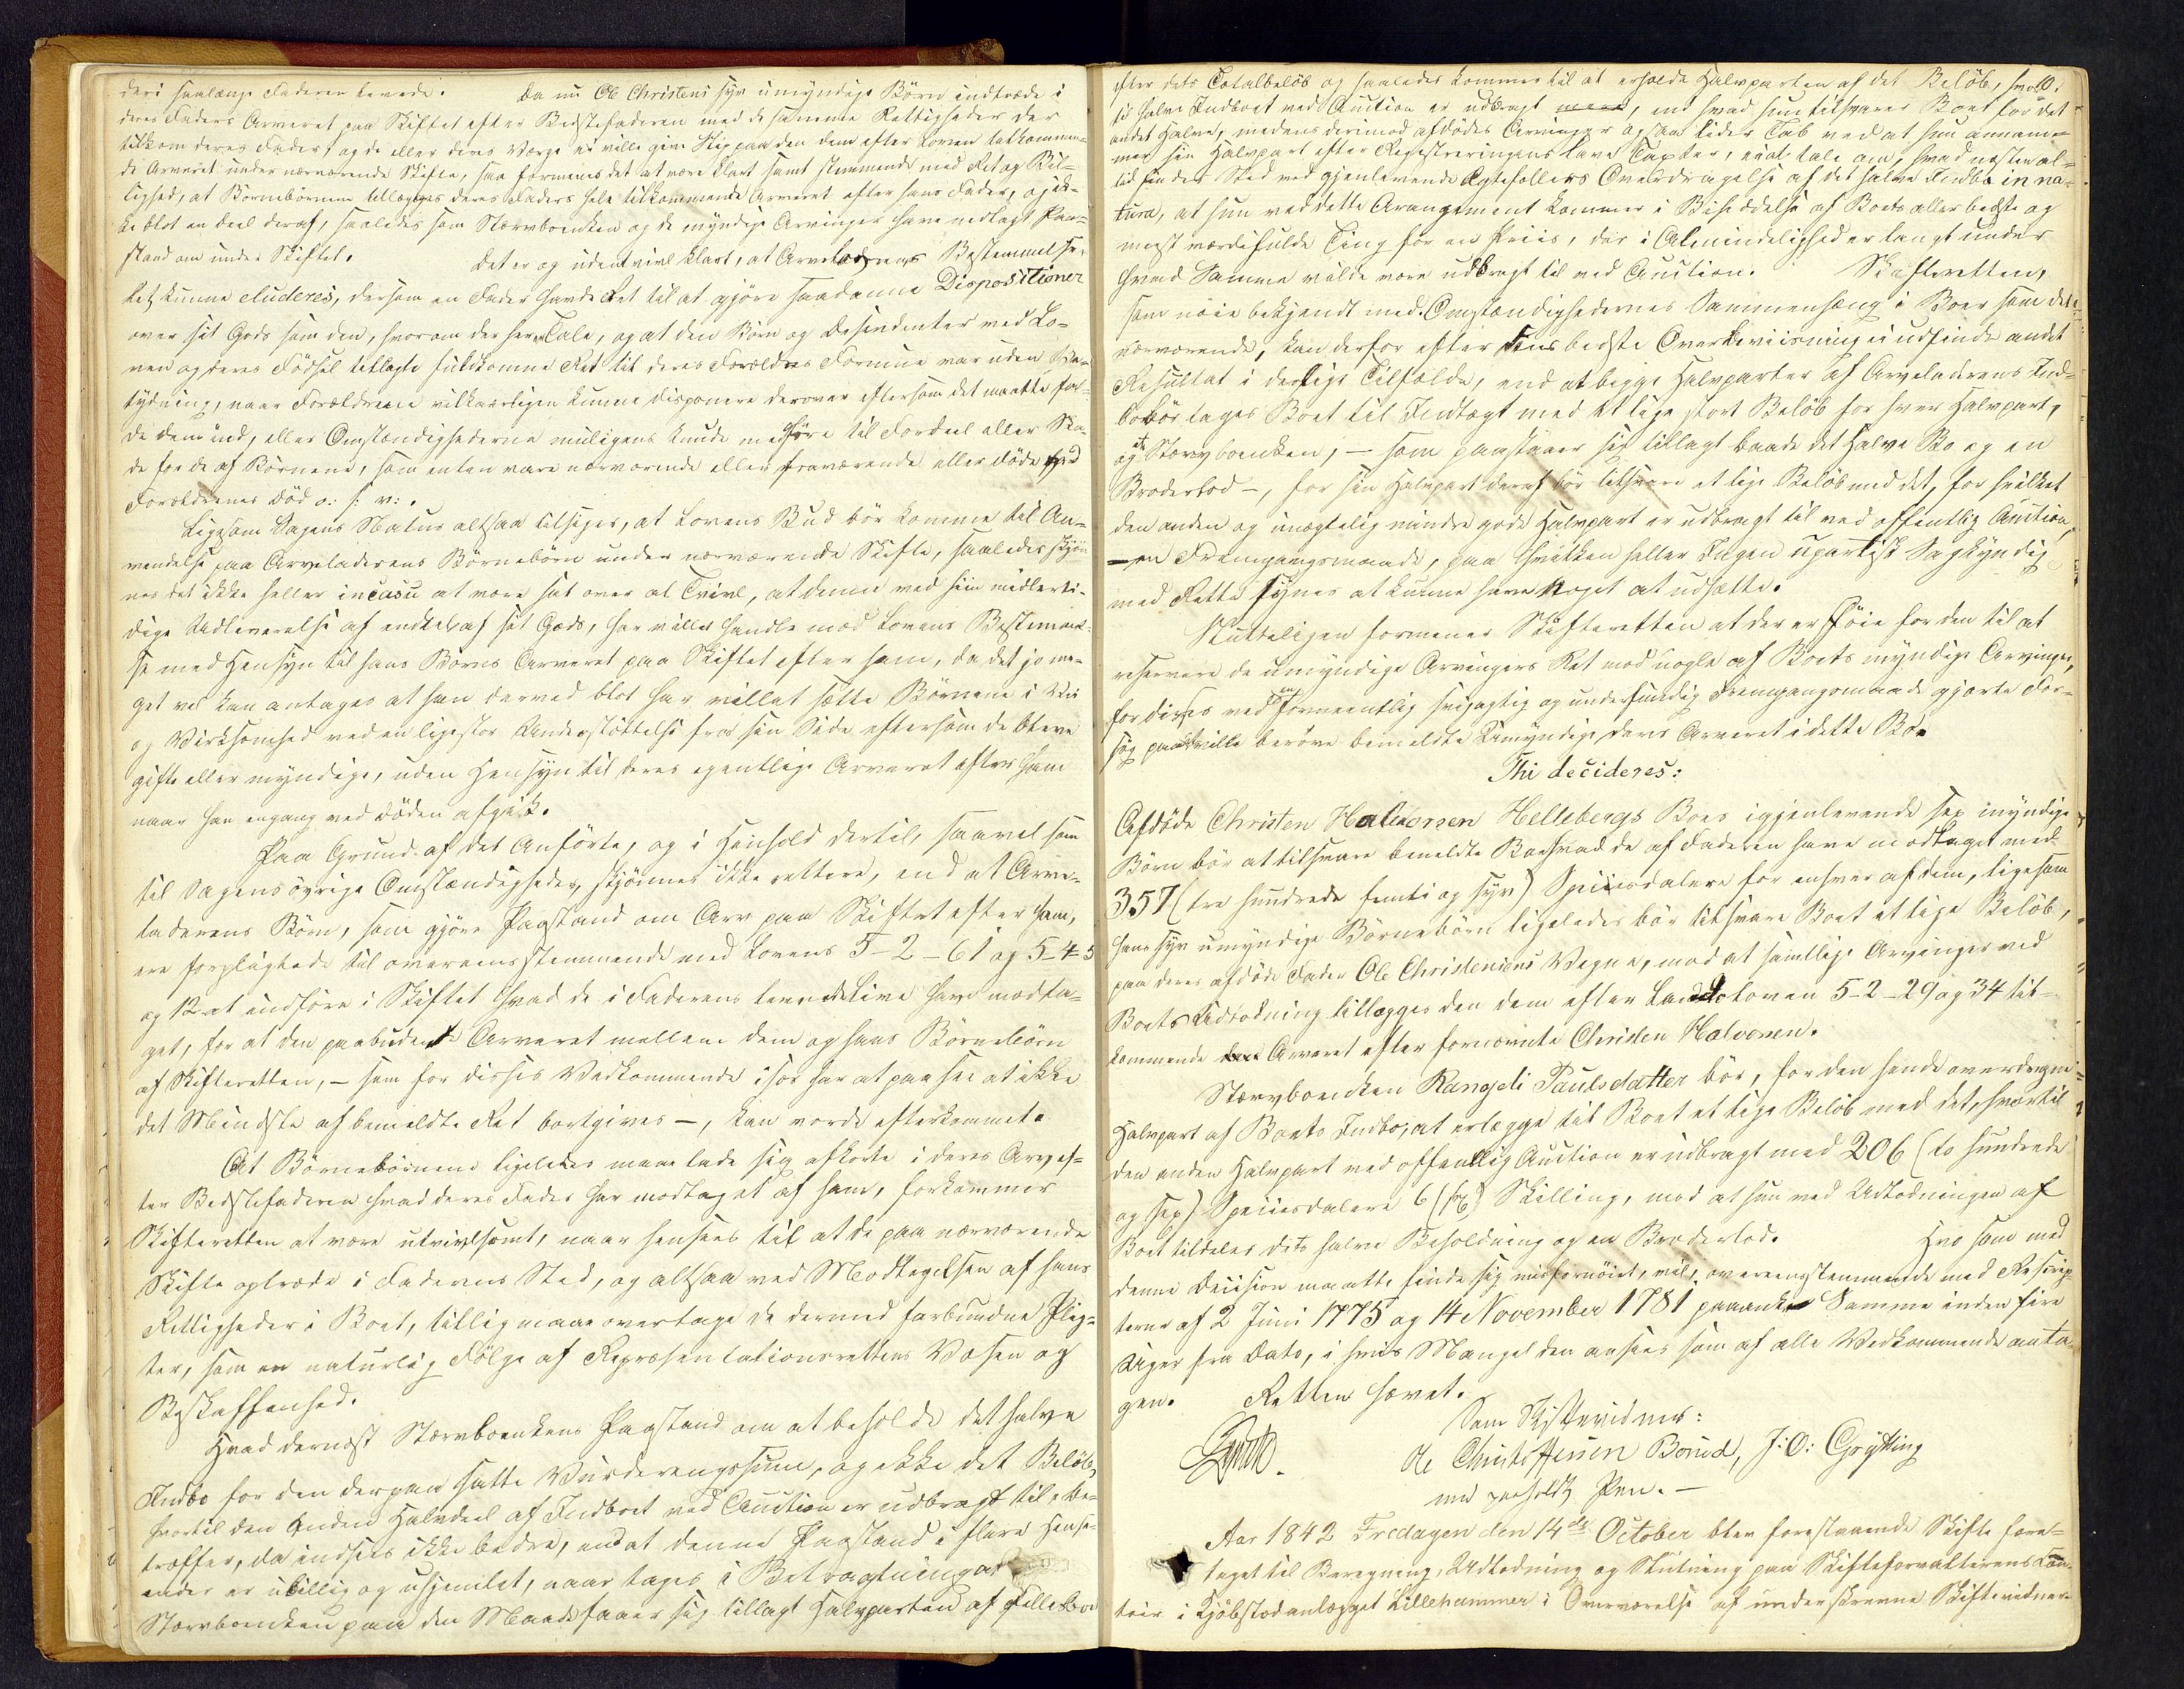 deri saalænge Faderen levede. Da nu Ole Christens syv umyndige Børn indtræde i
deres Faders Arveret paa Skiftet efter Bedstefaderen med de samme Rettigheder der
tilkom deres Fader, og de eller deres Værge ei ville give Slip paa den dem efter Loven tilkommen-
de Arveret under nærværende Skifte, saa formenes det at være klart samt stemmende med Ret og Bil-
lighed, at Børnebørnene tillægges deres Faders hele tilkommende Arveret efter hans Fader, og ik-
ke blot en Deel deraf, saaledes som Stervboenken og de myndige Arvinger have nedlagt Paa-
stand om under Skiftet. Det er og uden Tvivl klart, at Arvelovgivningens Bestemmelser
let kunne eluderes, dersom en Fader havde Ret til at gjøre saadanne Dispositioner
over sit Gods som den, hvorom der her er Tale, og at den Børn og Descendenter ved Lo-
ven og deres Fødsel tillagte fuldkomne Ret til deres Forældres Formue var uden Be-
tydning, naar Forældrene vilkaarligen kunne disponere derover eftersom det maatte fal-
de dem ind, eller Omstændighederne muligens kunde medføre til Fordeel eller Ska-
de for de af Børnene, som enten vare nærværende eller fraværende eller døde ved
Forældrenes Død o: s: v:.
Ligesom Sagens Natur altsaa tilsiger, at Lovens Bud bør komme til An-
vendelse paa Arveladerens Børnebørn under nærværende Skifte, saaledes skjøn-
nes det ikke heller in casu at være sat over al Tvivl, at denne ved sin midlerti-
dige Udleverelse af endeel af sit Gods, har villet handle mod Lovens Bestemmel-
se med Hensyn til hans Børns Arveret paa Skiftet efter ham, da det jo me-
get vel kan antages at han derved blot har villet sætte Børnene i Vei
og Virksomhed ved en ligestor Understøttelse fra sin Side eftersom de bleve
gifte eller myndige, uden Hensyn til deres egentlige Arveret efter ham
naar han engang ved Døden afgik.
Paa Grund af det Anførte, og i Henhold dertil, saavel som
til Sagens øvrige Omstændigheder, skjønnes ikke rettere, end at Arve-
laderens Børn, som gjøre Paastand om Arv paa Skiftet efter ham,
ere forpligtede til overeensstemmende med Lovens 5-2-61 og 5-4-5
og 12 at indføre i Skiftet hvad de i Faderens levende Live have modta-
get, for at den paabudende Arveret mellem dem og hans Børnebørn
af Skifteretten, – som for disses Vedkommende især har at paasee at ikke
det Mindste af bemeldte Ret bortgives –, kan vorde efterkommet.
At Børnebørnene ligeledes maae lade sig afkorte i deres Arv ef-
ter Bedstefaderen hvad deres Fader har modtaget af ham, forkommer
Skifteretten at være utvivlsomt, naar hensees til at de paa nærværende
Skifte optræde i Faderens Sted, og altsaa ved Modtagelsen af hans
Rettigheder i Boet, tillig maae overtage de dermed forbundne Plig-
ter, som en naturlig Følge af Repræsentationsrettens Væsen og
Beskaffenhed.
Hvad dernæst Stervboenkens Paastand om at beholde det halve
Indbo for den derpaa satte Vurderingssum, og ikke det Beløb,
hvortil den anden Halvdeel af Indboet ved Auction er udbragt til, be-
træffer, da indsees ikke bedre, end at denne Paastand i flere Hense-
ender er ubillig og uhjemlet, naar tages i Betragtning at
Stervboenken paa den Maade faaer sig tillagt Halvparten af Fællesboet
efter dets Totalbeløb og saaledes kommer til at erholde Halvparten af det Beløb, hvor-
til halve Indboet ved Auction er udbragt, end hvad hun tilsvarer Boet for det
andet Halve, medens derimod afdødes Arvinger ogsaa lider Tab ved at hun annam-
mer sin Halvpart efter Registreringens lave Taxter, ei at tale om, hvad næsten al-
tid finder Sted ved gjenlevende Ægtefællers Overdragelse af det halve Indbo in na-
tura, at hun ved dette Arangement kommer i Besiddelse af Boets allerbedste og
meest værdifulde Ting for en Priis, der i Almindelighed er langt under
hvad Samme vilde være udbragt til ved Auction. Skifteretten,
som nøie bekjendt med Omstændighedernes Sammenhæng i Boer som det
nærværende, kan derfor efter sin bedste Overbeviisning ei udfinde andet
Resultat i deslige Tilfælde, end at begge Halvparter af Arveladerens Ind-
bo bør tages Boet til Indtægt med et lige stort Beløb for hver Halvpart,
og at Stervboenken, – som paastaaer sig tillagt baade det halve Bo og en
Broderlod –, for sin Halvpart deraf bør tilsvare et lige Beløb med det, for hvilket
den anden og unægtelig mindre gode Halvpart er udbragt til ved offentlig Auction,
– en Fremgangsmaade, paa hvilken heller Ingen upartisk Sagkyndig
med Rette synes at kunne have Noget at udsætte.
Slutteligen formener Skifteretten at der er Føie for den til at
reservere de umyndige Arvingers Ret mod nogle af Boets myndige Arvinger,
for disses ved en formeentlig svigagtig og underfundig Fremgangsmaade gjorte For-
søg paa at ville berøve bemeldte Umyndige deres Arveret i dette Bo.
Thi decideres:
Afdøde Christen Halvorsen Hellebergs Boes igjenlevende sex myndige
Børn bør at tilsvare bemeldte Boe hvad de af Faderen have modtaget med
357 (tre hundrede femti og syv) Speciesdalere for enhver af dem, ligesom
hans syv umyndige Børnebørn ligeledes bør tilsvare Boet et lige Beløb,
paa deres afdøde Fader Ole Christensens Vegne, mod at samtlige Arvinger ved
Boets Udlodning tillægges den dem efter Landsloven 5-2-29 og 34 til-
kommende Arveret efter fornævnte Christen Halvorsen.
Stervboenken Rangdi Paulsdatter bør, for den hende overdragne
Halvpart af Boets Indbo, at erlægge til Boet et lige Beløb med det, hvortil
den anden Halvpart ved offentlig Auction er udbragt med 206 (to hundrede
og sex) Speciesdalere 6 (sex) Skilling, mod at hun ved Udlodningen af
Boet tildeles dets halve Beholdning og en Broderlod. Hvo som med
denne Decision maatte finde sig misfornøiet, vil, overeensstemmende med Rescrip-
terne af 2 Juni 1775 og 14 November 1781 paaanke Samme inden fire
Uger fra Dato, i hvis Mangel den ansees som af alle Vedkommende anta-
gen. Retten hævet.
Som Skiftevidner:
Ole Christoffersen Borud, J: O: Grytting
med paaholdt Pen. –
Aar 1842 Fredagen den 14de October blev forestaaende Skifte fore-
taget til Beregning, Udlodning og Slutning paa Skifteforvalterens Con-
toir i Kjøbstadanlægget Lillehammer i Overværelse af underskrevne Skiftevidner.